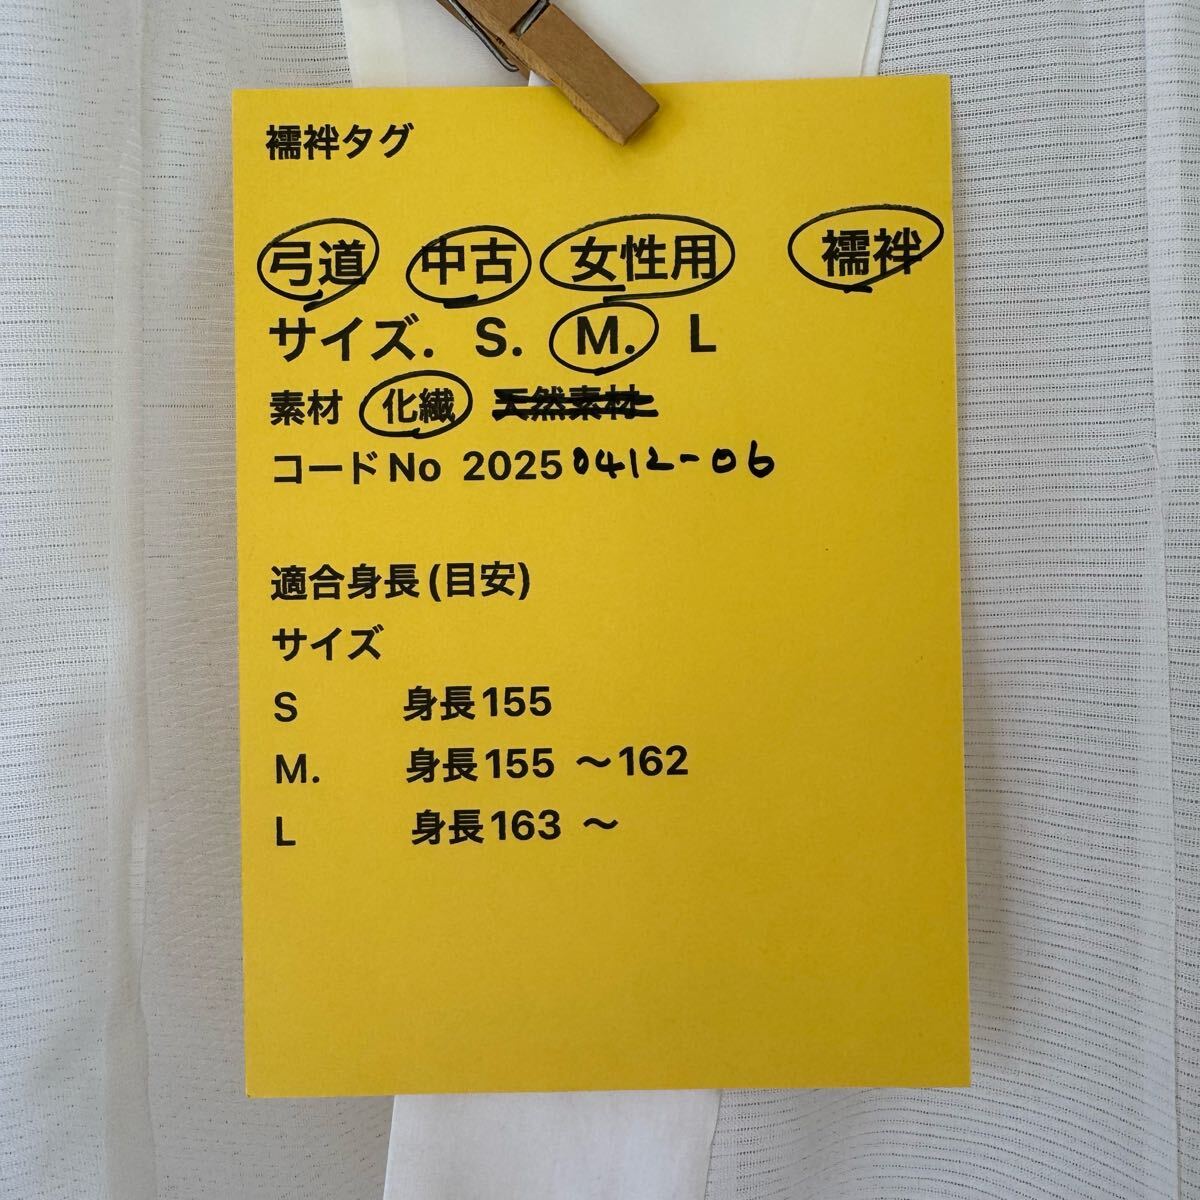 襦袢タグ
弓道 中古 女性用 襦袢
サイズ. S. M. L
素材 化繊 天然素材
コードNo 20250412-06
適合身長(目安)
サイズ
S 身長155
M. 身長155 〜162
L 身長163 〜